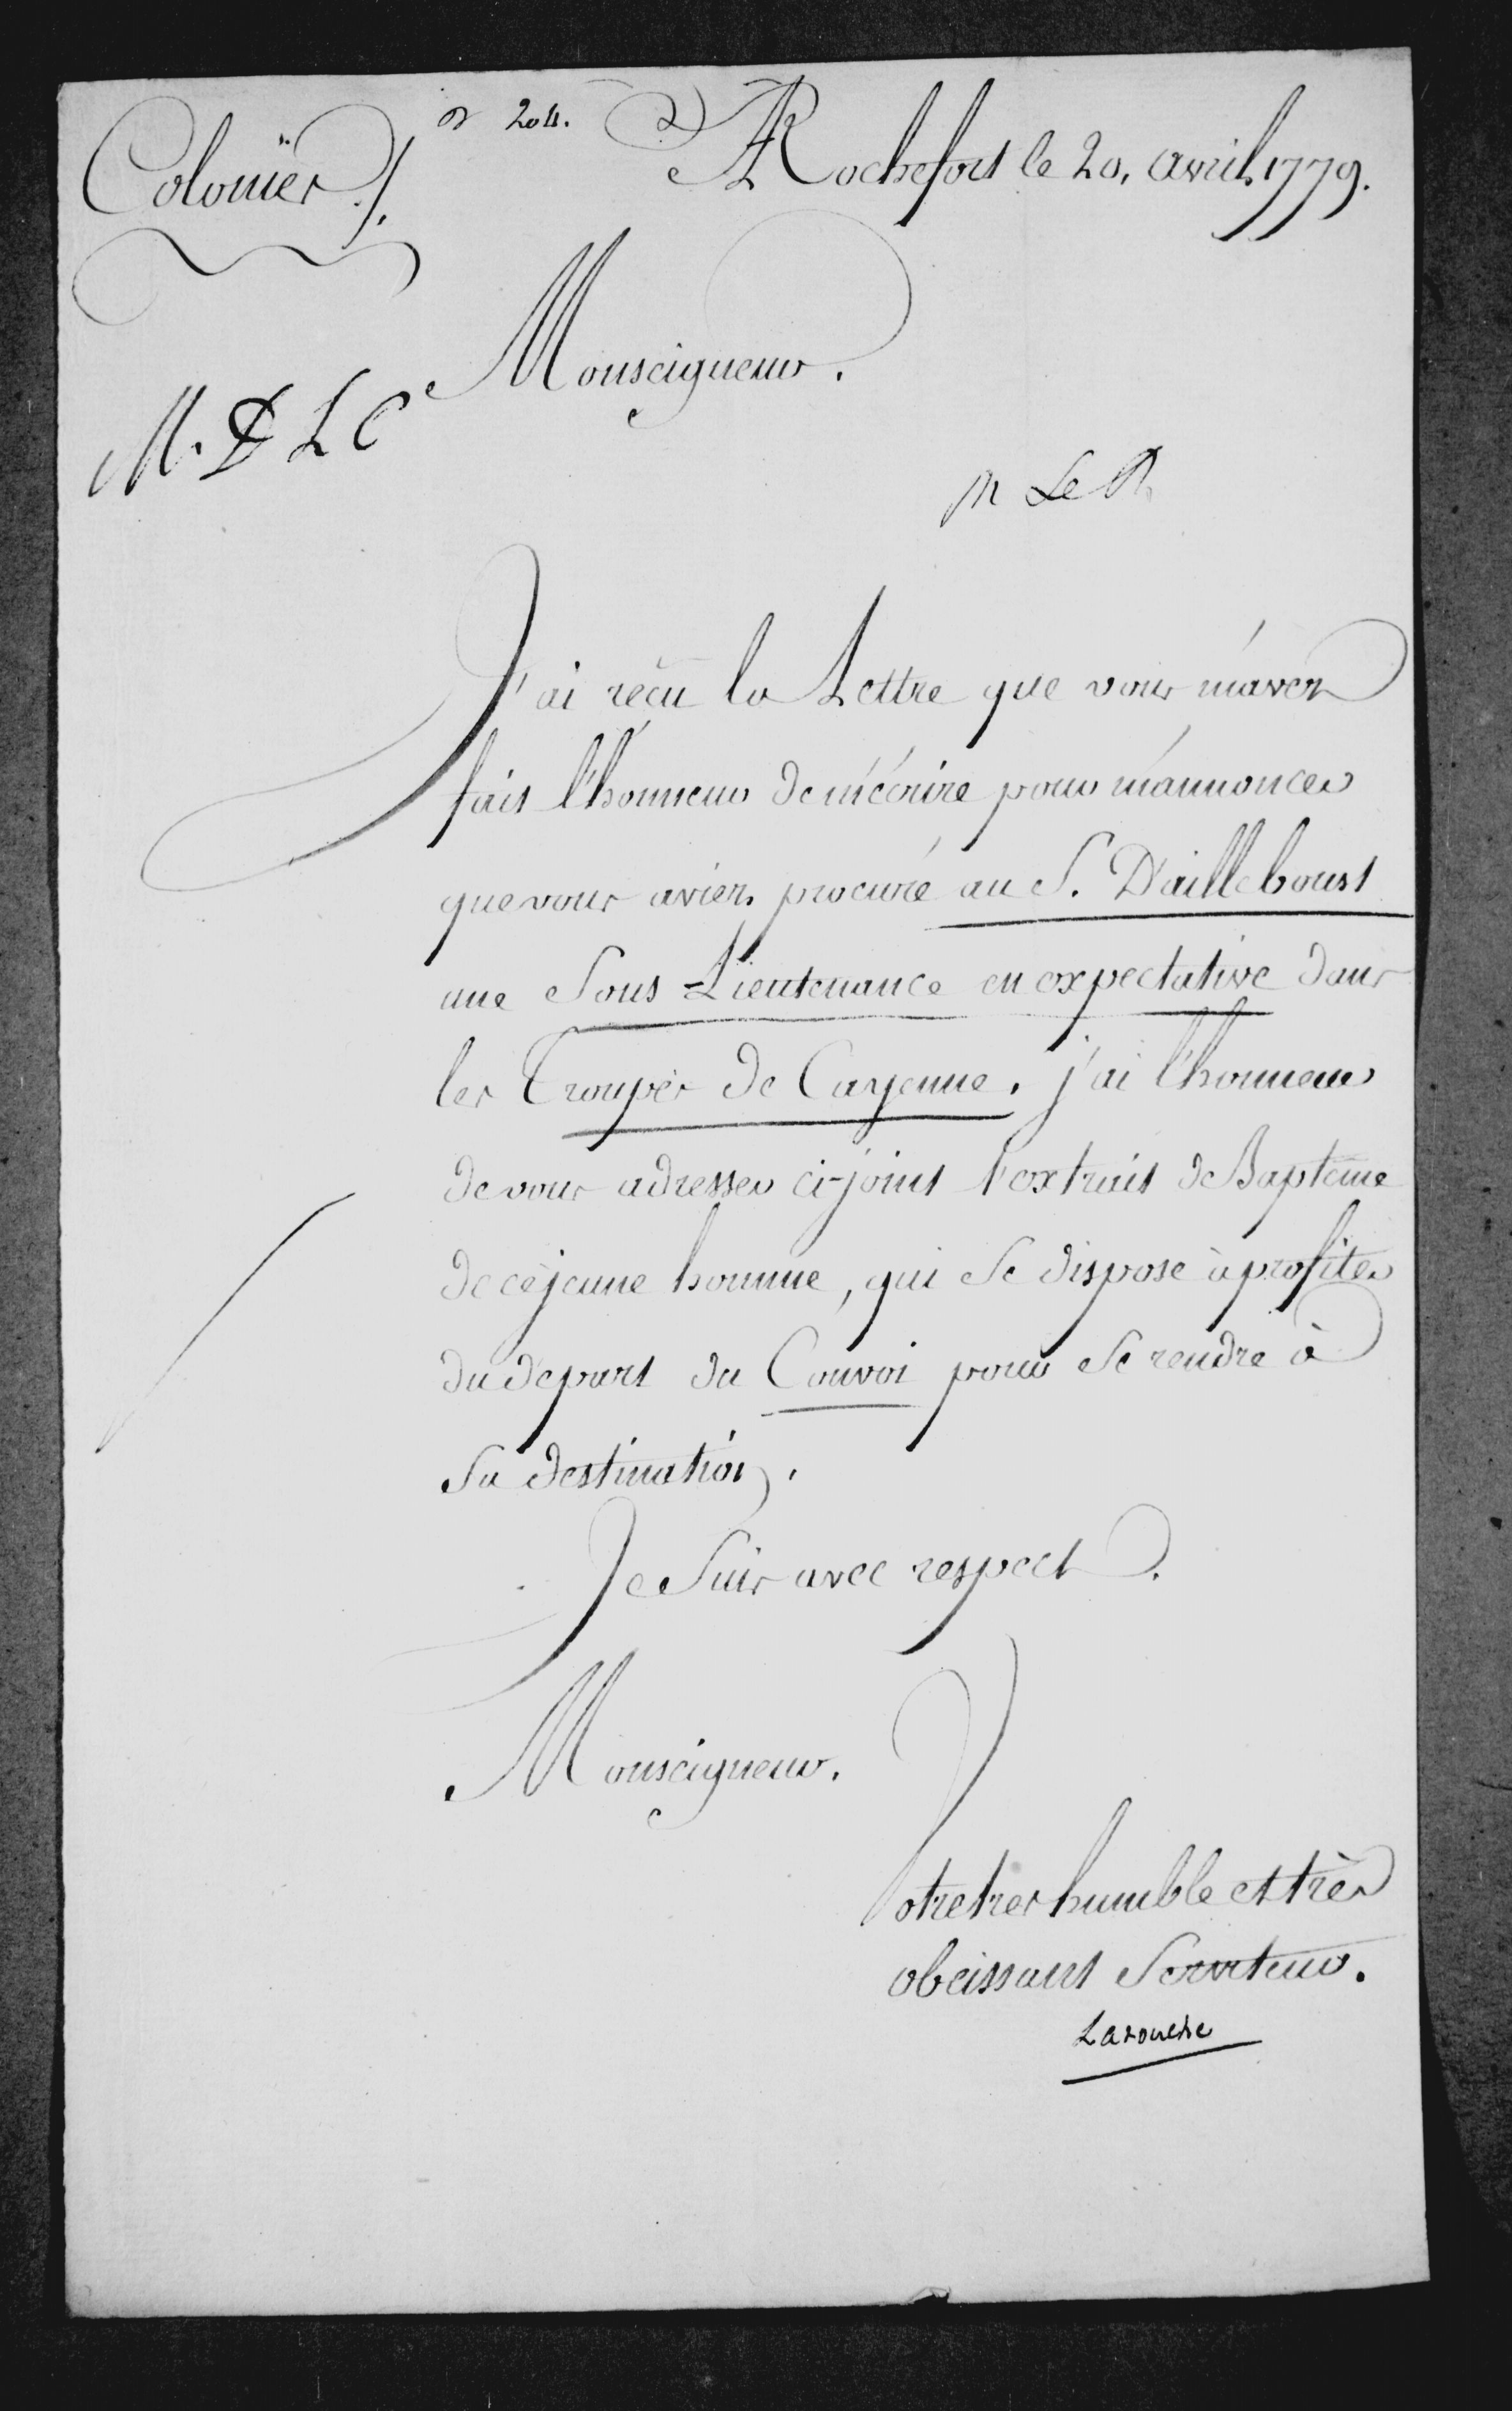 204.
A Rochefort le 20. avril 1779.
Colonies
Monseigneur.
M. D L C
M Le R
J'ai reçu la Lettre que vous m'avez
fait l'honneur de m'écrire pour m'annoncer
que vous aviez procuré au S. D'ailleboust
une Sous-Lieutenance en expectative dans
les Troupes de Cayenne. j'ai l'honneur
de vous adresser ci-joint l'extrait de Baptême
de ce jeune homme, qui se dispose à profiter
du départ du Convoi pour se rendre à
sa destination.
Je suis avec respect.
Monseigneur.
Votre tres humble et très
obeissant Serviteur.
Latouche